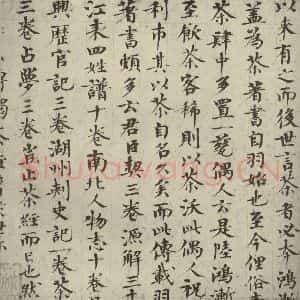 以來有之而後世言茶者必本鴻
蓋為茶著書自羽始也至今俚俗
茶肆中多置一甆偶人云是陸鴻漸
至飲茶客稀則以茶沃此偶人祝
利市其以茶自名久矣而此傳載羽
著書頗多云君臣契三卷源解三十
江表四姓譜十卷南北人物志十卷吳
興歷官記三卷湖州刺史記一卷茶
三卷占夢三卷豈止茶經而已也然
Shufawang.CN